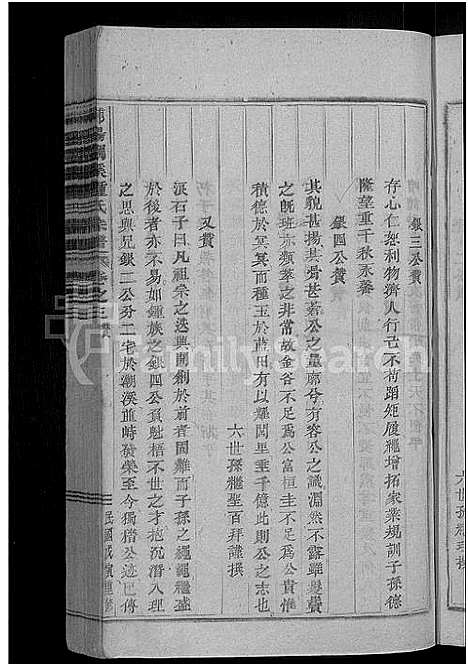 銀三公贊
存心仁恕利物濟人行己不苟蹈矩履繩增拓家業規訓子孫德
隆望重千秋永譽
銀四公贊
其貌甚揚其骨甚若公之量廓兮有容公之識淵然不露鬚髮
之既班亦類萃之非常故金谷不足爲公富桓圭不足爲公貴惟
積德於冥冥而種玉於藍田有以耀閭里垂千億此則公之志也
六世孫繼聖百拜謹撰
又贊
泒石子曰凡祖宗之迭興開創於前者固難而子孫之繩繩繼盛
於後者亦不易如鍾族之銀四公負魁梧不世之才抱沉潛入理
之思與兄銀二公分二宅於嶺溪並時發榮至今獨猶公遺已傳
鍾氏
之三
民國戊寅重修
六世孫繼理撰
FamilySearch